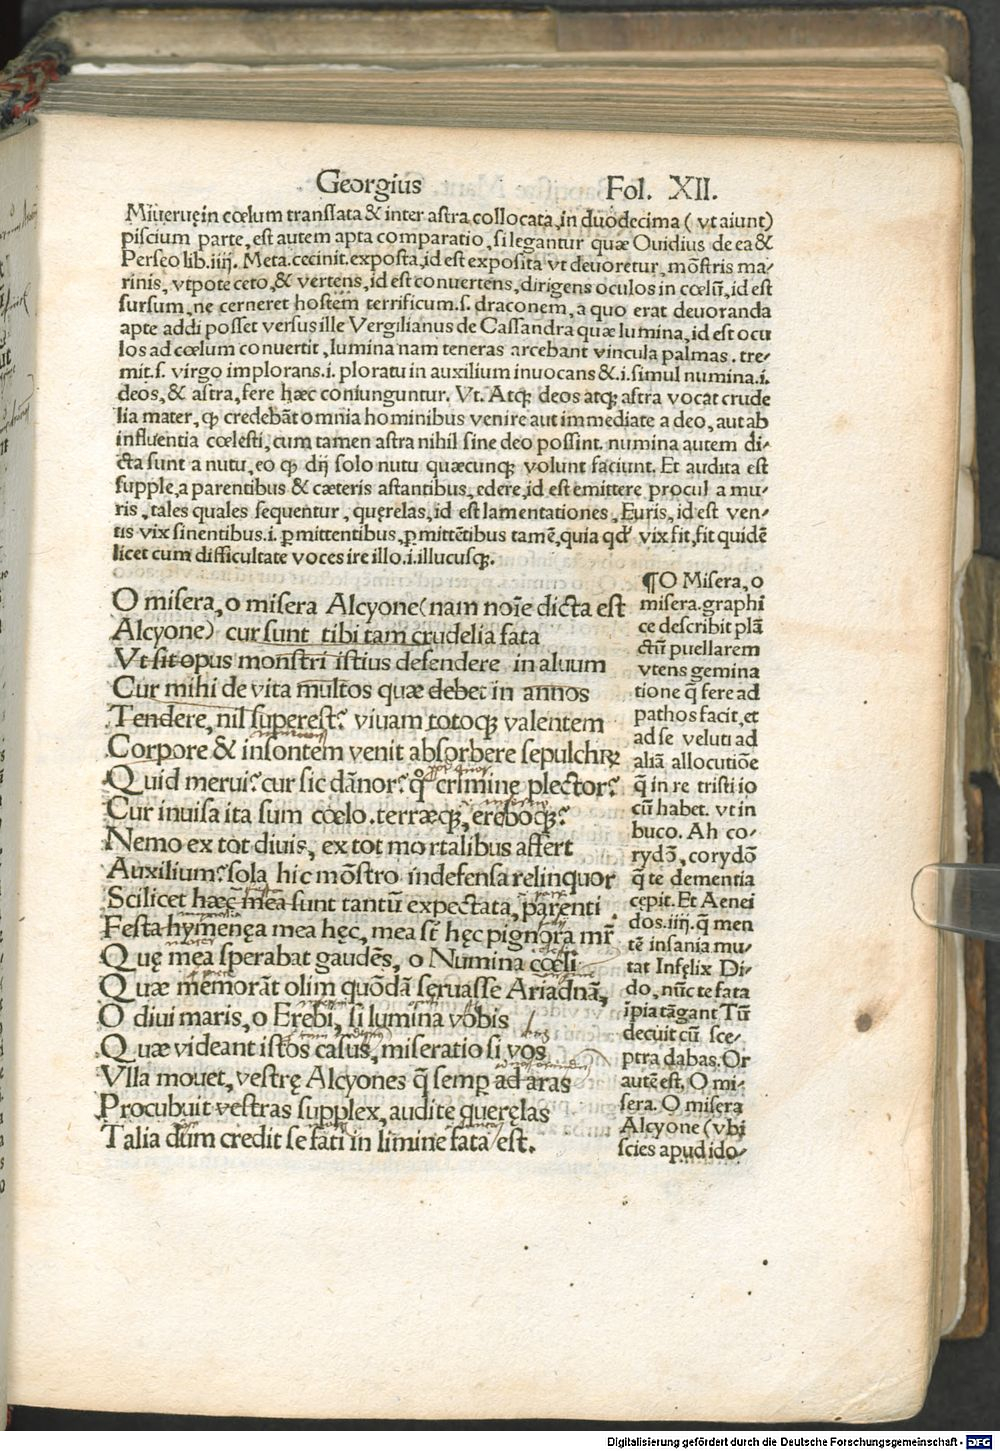 Georgius Fol. XII.
Miueruę in cœlum tranſlata & inter aſtra collocata, in duodecima ( vt aiunt)
piſcium parte, eſt autem apta comparatio, ſi legantur quæ Ouidius de ea &
Perſeo lib. iiij. Meta. cecinit. expoſta, id eſt expoſita vt deuoretur, mōſtris ma⸗
rinis, vtpote ceto, & vertens, id eſt conuertens, dirigens oculos in cœlū, id eſt
ſurſum, ne cerneret hoſtem terrificum. ſ. draconem, a quo erat deuoranda
apte addi poſſet verſus ille Vergilianus de Caſſandra quæ lumina, id eſt ocu
los ad cœlum conuertit, lumina nam teneras arcebant vincula palmas. tre⸗
mit. ſ. virgo implorans. i. ploratu in auxilium inuocans &. i. ſimul numina. i.
deos, & aſtra, fere hæc coniunguntur. Vt. Atqꝫ deos atqꝫ aſtra vocat crude
lia mater, ꝙ credebāt omnia hominibus venire aut immediate a deo, aut ab
influentia cœleſti, cum tamen aſtra nihil ſine deo poſſint. numina autem di⸗
cta ſunt a nutu, eo ꝙ dij ſolo nutu quæcunqꝫ volunt faciunt. Et audita eſt
ſupple, a parentibus & cæteris aſtantibus, edere, id eſt emittere procul a mu⸗
ris, tales quales ſequentur, quęrelas, id eſt lamentationes, Euris, id eſt ven⸗
tis vix ſinentibus. i. ꝑmittentibus, ꝑmittētibus tamē, quia qđ vix fit, fit quidē
licet cum difficultate voces ire illo. i. illucuſqꝫ.
O miſera, o miſera Alcyone (nam noīe dicta eſt
Alcyone) cur ſunt tibi tam crudelia fata
Vt ſit opus monſtri iſtius deſendere in aluum
Cur mihi de vita multos quæ debet in annos
Tendere, nil ſupereſt? viuam totoqꝫ valentem
Corpore & inſontem venit abſorbere ſepulchrꝫ
Quid merui? cur ſic dānor? q̊ crimine plector?
Cur inuiſa ita ſum cœlo. terræqꝫ, ereboqꝫ?
Nemo ex tot diuis, ex tot mortalibus affert
Auxilium? ſola hic mōſtro indefenſa relinquor
Scilicet hæc mea ſunt tantū expectata, parenti
Feſta hymenęa mea hęc, mea ſt̄ hęc pignora mr̄i
Quę mea ſperabat gaudēs, o Numina cœli
Quæ memorāt olim quōdā ſeruaſſe Ariadnā,
O diui maris, o Erebi, ſi lumina vobis
Quæ videant iſtos caſus, miſeratio ſi vos
Vlla mouet, veſtrę Alcyones q̄ ſemꝑ ad aras
Procubuit veſtras ſupplex, audite queręlas
Talia dum credit ſe fati in limine fata eſt.
¶O Miſera, o
miſera. graphi
ce deſcribit plā
ctū puellarem
vtens gemina
tione q̄ fere ad
pathos facit, et
ad ſe veluti ad
aliā allocutiōe
q̄ in re triſti io
cū habet. vt in
buco. Ah co⸗
rydō, corydō
q̄ te dementia
cępit. Et Aenei
dos. iiij. q̄ men
tē inſania mu⸗
tat Infęlix Di⸗
do, nūc te fata
īpia tāgant Tū
decuit cū ſce⸗
ptra dabas. Or
autē eſt, O mi⸗
ſera. O miſera
Alcyone (vbi
ſcies apud ido⸗
Digitalisierung gefördert durch die Deutsche Forschungsgemeinschaft - DFG